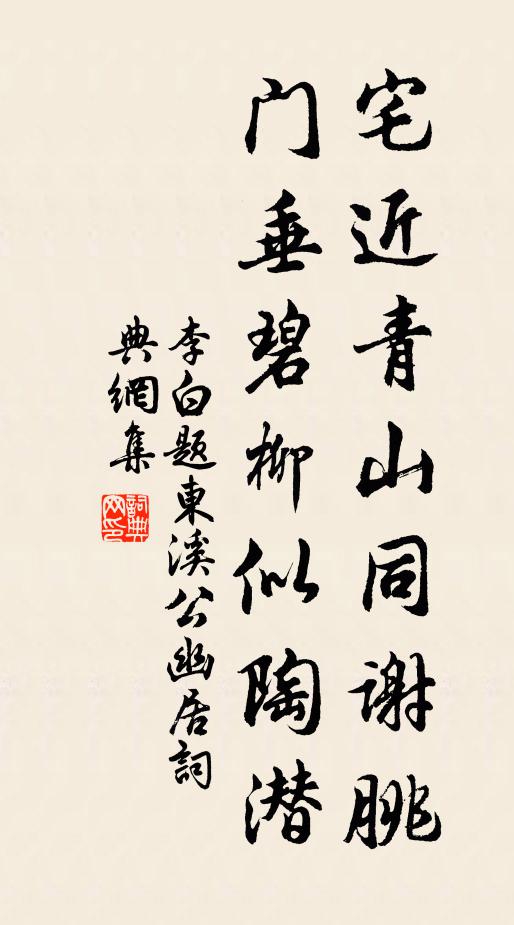 宅近青山同谢朓
门垂碧柳似陶潜
李白题東溪公幽居詞
典網集
詞典網印